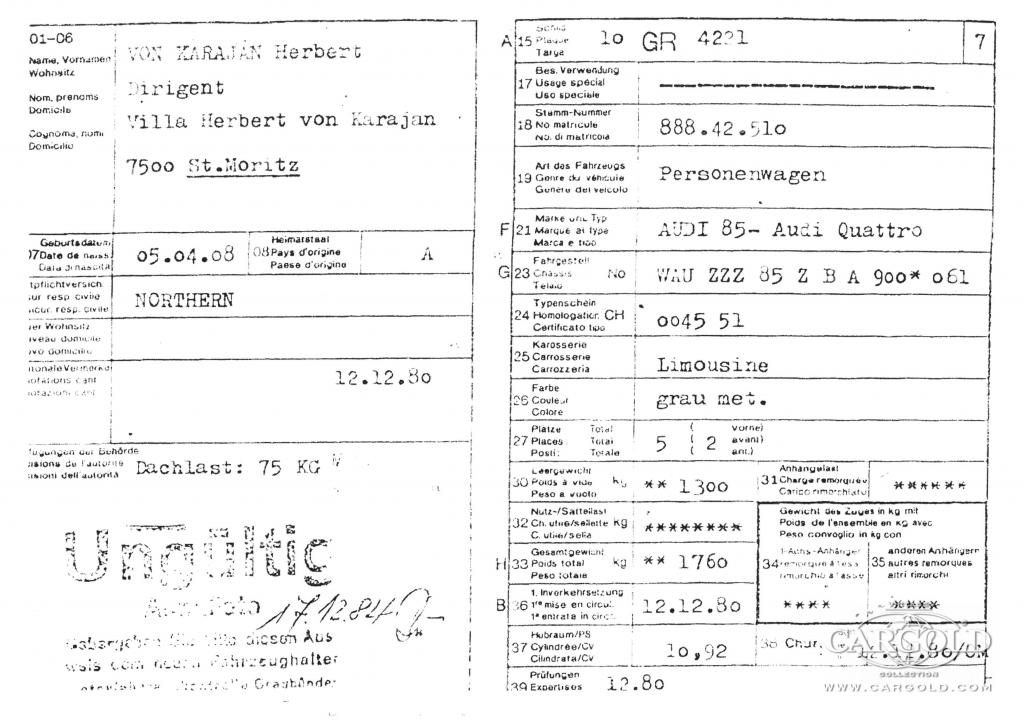 01-06
Name, Vornamen
Wohnsitz
Nom, prenoms
Domicile
Cognome, nomi
Domicilio
VON KARAJAN Herbert
Dirigent
Villa Herbert von Karajan
7500 St.Moritz
Geburtsdatum
07 Date de naiss.
Data di nascita
05.04.08
Heimatstaat
08 Pays d'origine
Paese d'origine
A
tpflichtversich.
ur resp civile
icur. resp. civile
NORTHERN
er Wohnsitz
veau domicile
ovo domicilio
onale Vermerke
otations cant
otazioni cant
12.12.80
fugungen der Behörde
isions de l'autorité
isioni dell'autorità
Dachlast: 75 KG
Ungültig
17.12.84
diesen Aus
weis dem neuen Fahrzeughalter
Graubünden
A 15 Schild
Plaque
Targa
10 GR 4221
7
17 Bes. Verwendung
Usage spécial
Uso speciale
18 Stamm-Nummer
No matricule
No. di matricola
888.42.510
19 Art des Fahrzeugs
Genre du véhicule
Genere del veicolo
Personenwagen
F 21 Marke und Typ
Marque et type
Marca e tipo
AUDI 85- Audi Quattro
G 23 Fahrgestell
Châssis No
Telaio
WAU ZZZ 85 Z B A 900* 061
24 Typenschein
Homologation CH
Certificato tipo
0045 51
25 Karosserie
Carrosserie
Carrozzeria
Limousine
26 Farbe
Couleur
Colore
grau met.
27 Plätze Total
Places Total
Posti: Totale
5 ( 2 vorne)
( avant)
( ant.)
30 Leergewicht
Poids à vide kg
Peso a vuoto
** 1300
31 Anhängelast
Charge remorquée
Carico rimorchiato
******
32 Nutz-/Sattellast
Ch. utile/sellette kg
C. utile/sella
********
Gewicht des Zuges in kg mit
Poids de l'ensemble en kg avec
Peso convoglio in kg con
H 33 Gesamtgewicht
Poids total kg
Peso totale
** 1760
34 1-Achs-Anhänger
remorque à 1 ess.
rimorchio a 1 asse
****
35 anderen Anhängern
autres remorques
altri rimorchi
****
B 36 1. Inverkehrsetzung
1re mise en circul.
1a entrata in circ.
12.12.80
37 Hubraum/PS
Cylindrée/CV
Cilindrata/CV
10,92
38 Chur,
12.12.80/CM
39 Prüfungen
Expertises
12.80
CARGOLD
COLLECTION
WWW.CARGOLD.COM